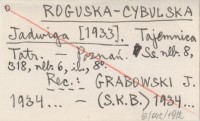 ROGUSKA-CYBULSKA
Jadwiga [1933]. Tajemnica
Tatr. Poznań. Ss. nlb. 8,
318, nlb. 6, il., 8°.
Rec.: GRABOWSKI J.
1934... — (S.K.B.) 1934...